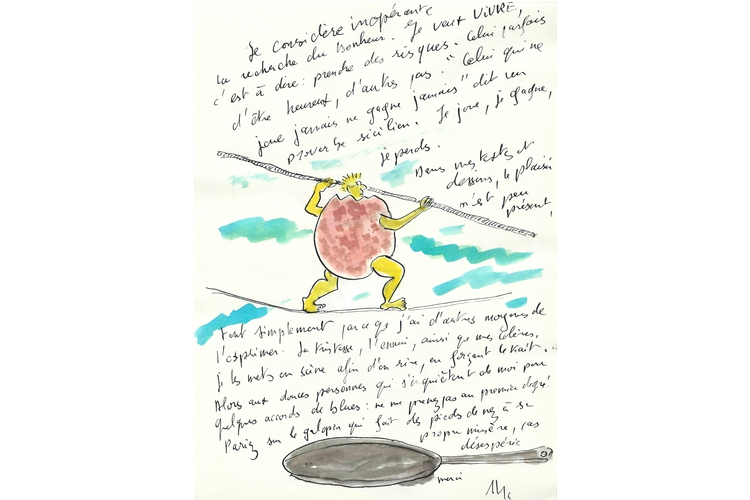 Je considère inopérante
la recherche du bonheur. Je veux VIVRE,
c'est à dire : prendre des risques. Celui parfois
d'être heureux, d'autres pas. "Celui qui ne
joue jamais ne gagne jamais" dit un
proverbe sicilien. Je joue, je gagne,
je perds.
Dans mes textes et
dessins, le plaisir
n'est peu
présent,
tout simplement parce que j'ai d'autres moyens de
l'exprimer. La tristesse, l'ennui, ainsi que mes colères,
je les mets en scène afin d'en rire, en forçant le trait.
Alors aux douces personnes qui s'inquiètent de moi pour
quelques accords de blues : ne me prenez pas au premier degré!
Pariez sur le galopin qui fait des pieds de nez à sa
propre misère, pas
désespérée
merci